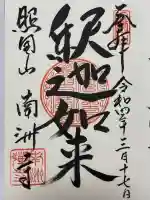 奉拝
令和四年三月十七日
釈迦如来
照国山 南洲寺